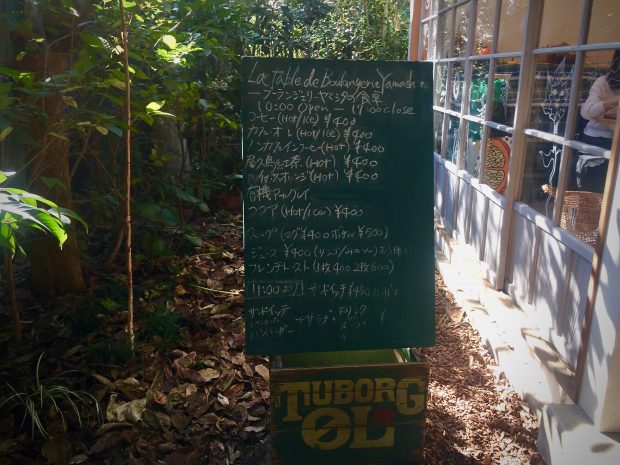 La Table de Boulangerie Yamashita
ーブーランジェリーヤマシタの食卓
10:00 Open 17:00 close
コーヒー(Hot/Ice) ¥400
カフェオレ(Hot/Ice) ¥400
ノンカフェインコーヒー(Hot) ¥400
屋久島紅茶(Hot) ¥400
(Hot) ¥400
有機アールグレイ
ココア(Hot/Ice) ¥400
スープ(マグ¥400 ボウル¥500)
ジュース ¥400
フレンチトースト(1枚400 2枚600)
11:00より サンドイッチ
サンドイッチ
ハンバーガー
+サラダ+ドリンク
¥
TUBORG
ØL